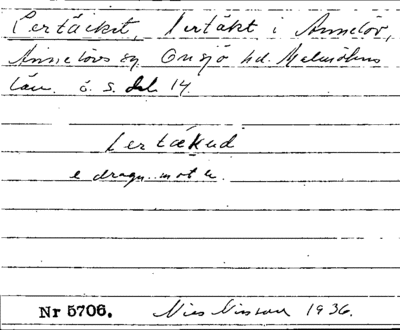 Lertäckt, lertäkt i Annelöv,
Annelövs sn Onsjö hd. Malmöhus
län. ö. s. del 14
lertækud
e dragn. mot u.
Nr 5706. Nils Nilsson 1936.